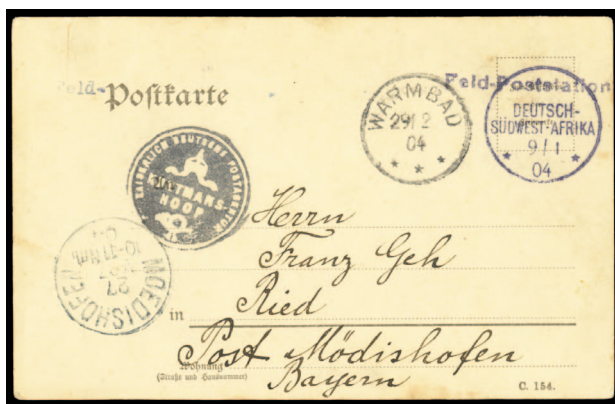 Feld-Postkarte
Feld-Poststation
WARMBAD
29/2
04
DEUTSCH-
SÜDWEST-AFRIKA
9/1
04
KAISERLICH DEUTSCHE POSTAGENTUR
HOOP
MOEDISHOFEN
27
10-11 Nm
04
Herrn
Franz Geh
Ried
in
Post Mödishofen
Wohnung
Bayern
(Straße und Hausnummer)
C. 154.